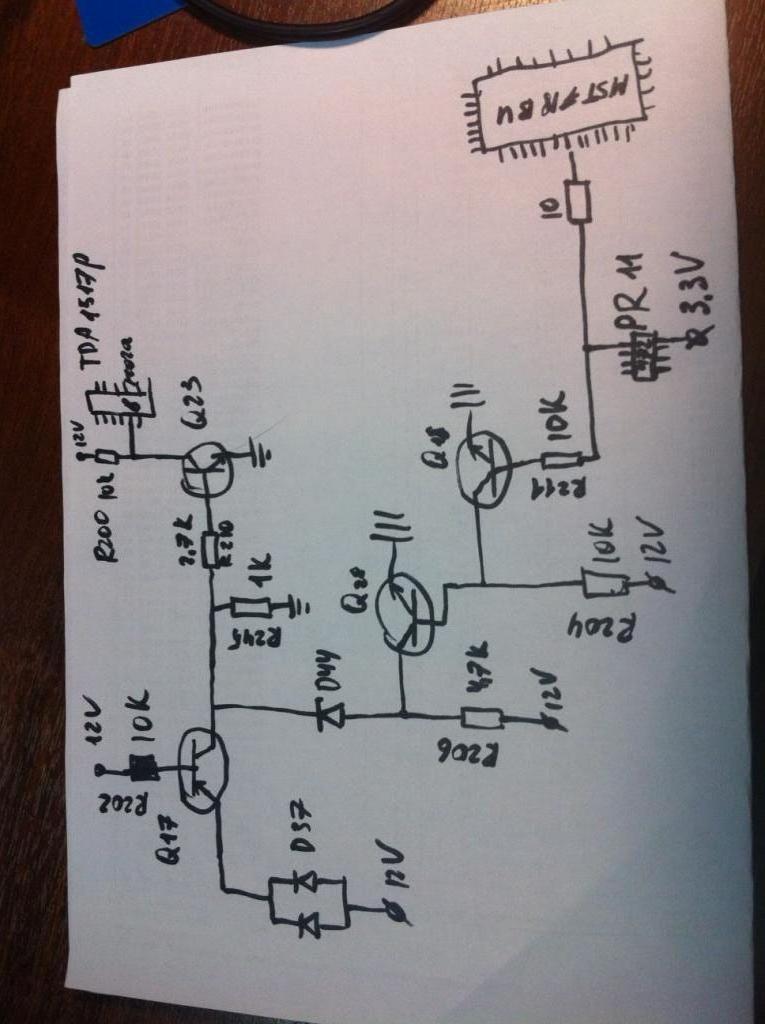 MSTAR BU
10
PR 11
3,3V
TDA 1517P
12V
R200 10k
Q23
2.7K
R210
1K
R245
Q18
10K
R211
Q28
10K
R204
12V
D44
4,7K
R206
12V
12V
10K
R202
Q17
D37
12V